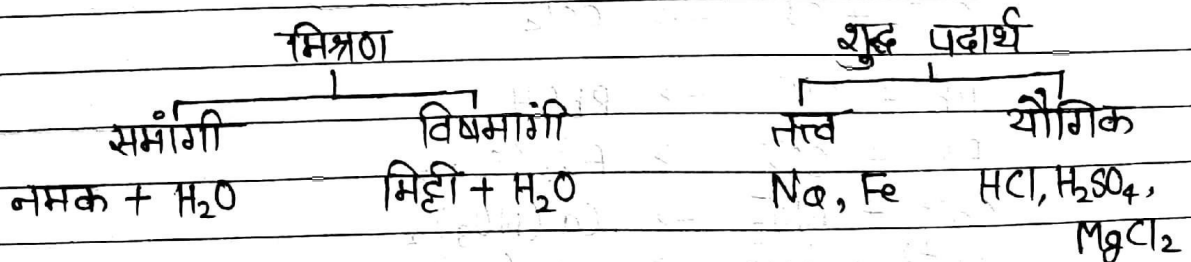 मिश्रण शुद्ध पदार्थ
समांगी विषमागी तत्व यौगिक
नमक + H₂O मिट्टी + H₂O Na, Fe HCl, H₂SO₄,
MgCl₂